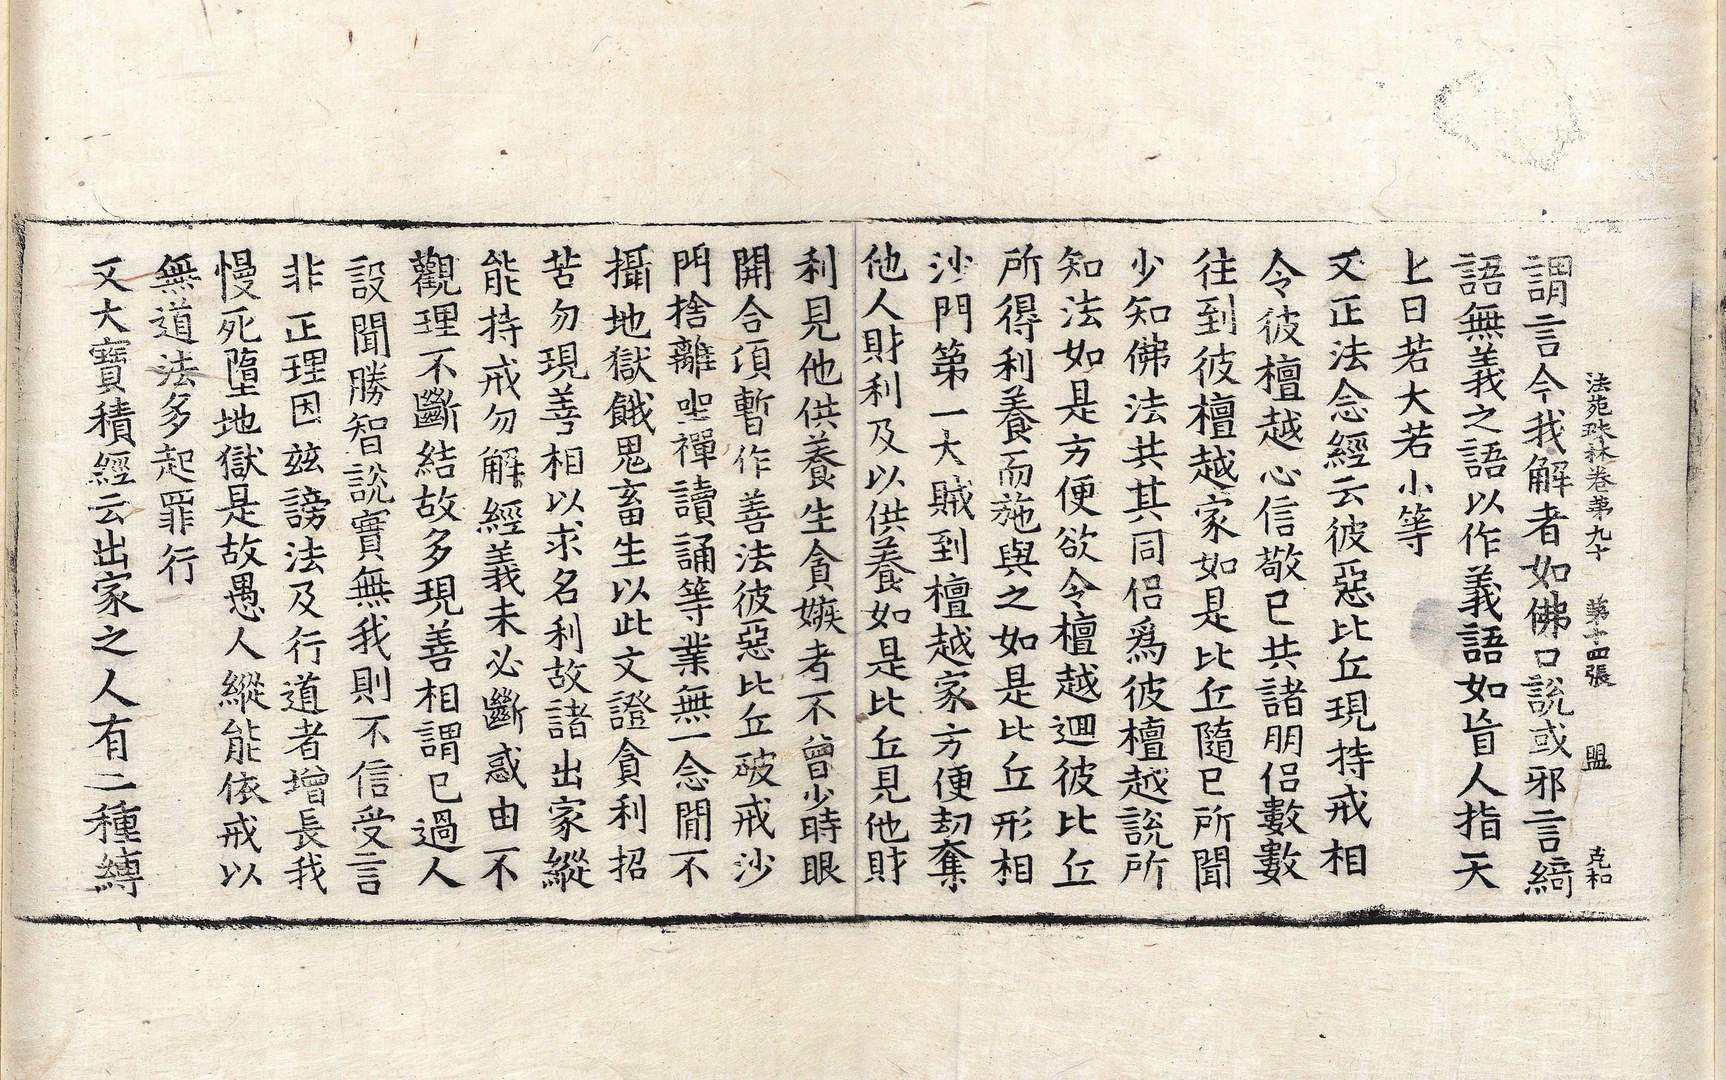 法苑珠林卷第九十 第十四張 盟 克和
謂言今我解者如佛口說或邪言綺
語無義之語以作義語如盲人指天
上日若大若小等
又正法念經云彼惡比丘現持戒相
令彼檀越心信敬已共諸朋侶數數
往到彼檀越家如是比丘隨已所聞
少知佛法共其同侶爲彼檀越說所
知法如是方便欲令檀越迴彼比丘
所得利養而施與之如是比丘形相
沙門第一大賊到檀越家方便劫奪
他人財利及以供養如是比丘見他財
利見他供養生貪嫉者不曾少時眼
開合項暫作善法彼惡比丘破戒沙
門捨離坐禪讀誦等業無一念閒不
攝地獄餓鬼畜生以此文證貪利招
苦勿現善相以求名利故諸出家縱
能持戒勿解經義未必斷惑由不
觀理不斷結故多現善相謂已過人
設聞勝智說實無我則不信受言
非正理因玆謗法及行道者增長我
慢死墮地獄是故愚人縱能依戒以
無道法多起罪行
又大寶積經云出家之人有二種縛